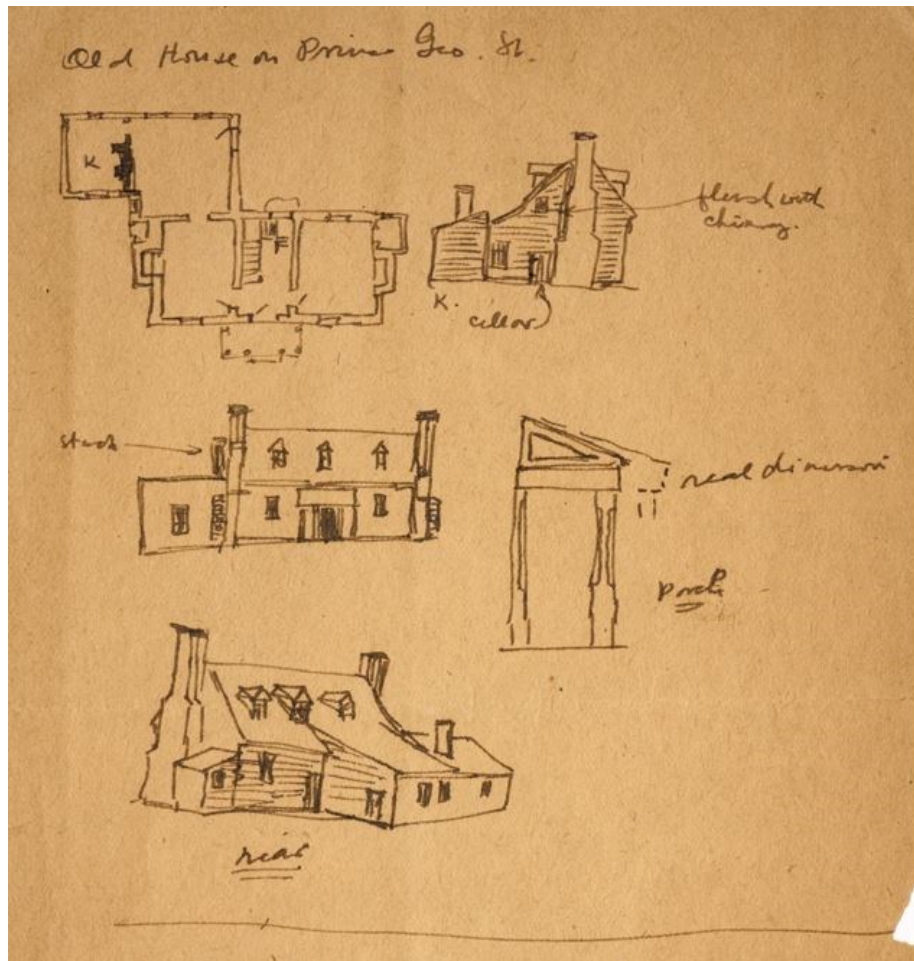 Old House on Prince Geo. St.
K
flush with
chimney.
K.
cellar
stack
real dimension
Porch
rear